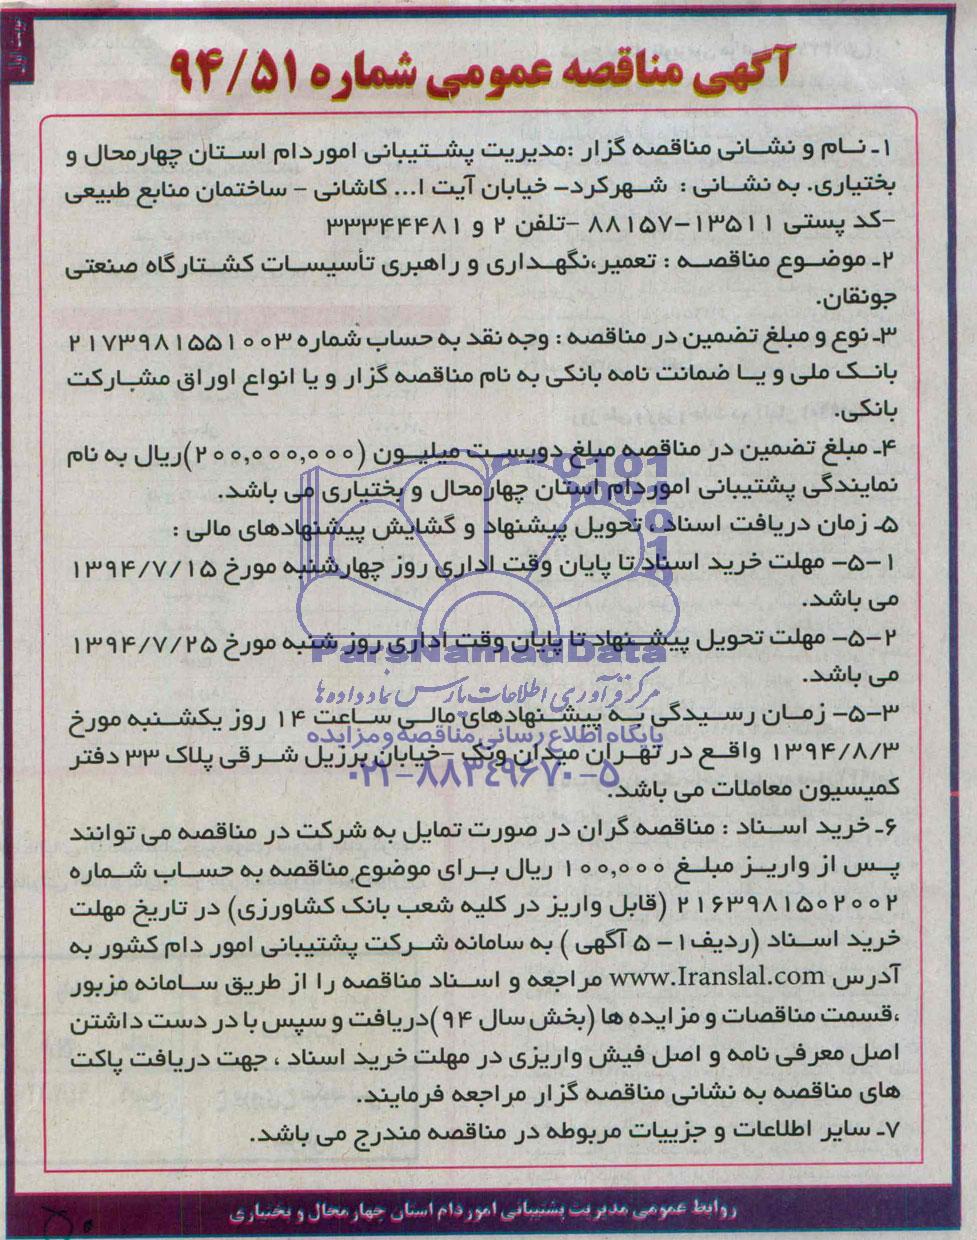 نوبت اول
آگهی مناقصه عمومی شماره ۹۴/۵۱
۱ـ نـام و نشـانی مناقصه گـزار :مدیریت پشـتیبانی اموردام اسـتان چهارمحال و
بختیاری. به نشـانی : شـهرکرد– خیابان آیت ا... کاشـانی – ساختمان منابع طبیعی
–کد پستی ۱۳۵۱۱–۸۸۱۵۷ –تلفن ۲ و ۳۳۳۴۴۴۸۱
۲ـ موضـوع مناقصـه : تعمیر،نگهـداری و راهبری تأسیسـات کشـتارگاه صنعتی
جونقان.
۳ـ نوع و مبلغ تضمین در مناقصه : وجه نقد به حساب شماره ۲۱۷۳۹۸۱۵۵۱۰۰۳
بانـک ملی و یـا ضمانت نامه بانکی به نام مناقصه گزار و یا انواع اوراق مشـارکت
بانکی.
۴ـ مبلغ تضمین در مناقصه مبلغ دویسـت میلیـون (۲۰۰,۰۰۰,۰۰۰)ریال به نام
نمایندگی پشتیبانی اموردام استان چهارمحال و بختیاری می باشد.
۵ـ زمان دریافت اسناد ، تحویل پیشنهاد و گشایش پیشنهادهای مالی :
۵-۱– مهلت خرید اسناد تا پایان وقت اداری روز چهارشنبه مورخ ۱۳۹۴/۷/۱۵
می باشد.
۵-۲– مهلت تحویل پیشـنهاد تا پایان وقت اداری روز شنبه مورخ ۱۳۹۴/۷/۲۵
می باشد.
۵-۳– زمـان رسـیدگی بـه پیشـنهادهای مالـی سـاعت ۱۴ روز یکشـنبه مورخ
۱۳۹۴/۸/۳ واقـع در تهـران میدان ونک –خیابان برزیل شـرقی پلاک ۳۳ دفتر
کمیسیون معاملات می باشد.
۶ـ خرید اسـناد : مناقصه گران در صورت تمایل به شرکت در مناقصه می توانند
پـس از واریـز مبلـغ ۱۰۰,۰۰۰ ریال بـرای موضوع مناقصه به حسـاب شـماره
۲۱۶۳۹۸۱۵۰۲۰۰۲ (قابل واریز در کلیه شعب بانک کشاورزی) در تاریخ مهلت
خرید اسـناد (ردیف۱– ۵ آگهی ) به سامانه شـرکت پشتیبانی امور دام کشور به
آدرس www.Iranslal.com مراجعه و اسـناد مناقصه را از طریق سـامانه مزبور
،قسمت مناقصات و مزایده ها (بخش سال ۹۴)دریافت و سپس با در دست داشتن
اصل معرفی نامه و اصل فیش واریزی در مهلت خرید اسناد ، جهت دریافت پاکت
های مناقصه به نشانی مناقصه گزار مراجعه فرمایند.
۷ـ سایر اطلاعات و جزییات مربوطه در مناقصه مندرج می باشد.
ParsNamadData
مرکز فرآوری اطلاعات پارس نماد داده ها
پایگاه اطلاع رسانی مناقصه و مزایده
۰۲۱–۸۸۳۴۹۶۷۰–۵
روابط عمومی مدیریت پشتیبانی اموردام استان چهارمحال و بختیاری